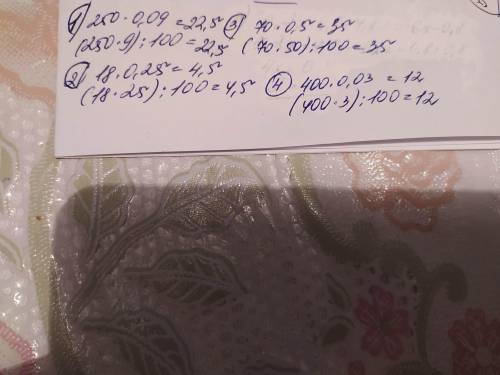 1) 250 · 0,09 = 22,5
(250 · 9) : 100 = 22,5
2) 18 · 0,25 = 4,5
(18 · 25) : 100 = 4,5
3) 70 · 0,5 = 35
(70 · 50) : 100 = 3,5
4) 400 · 0,03 = 12
(400 · 3) : 100 = 12